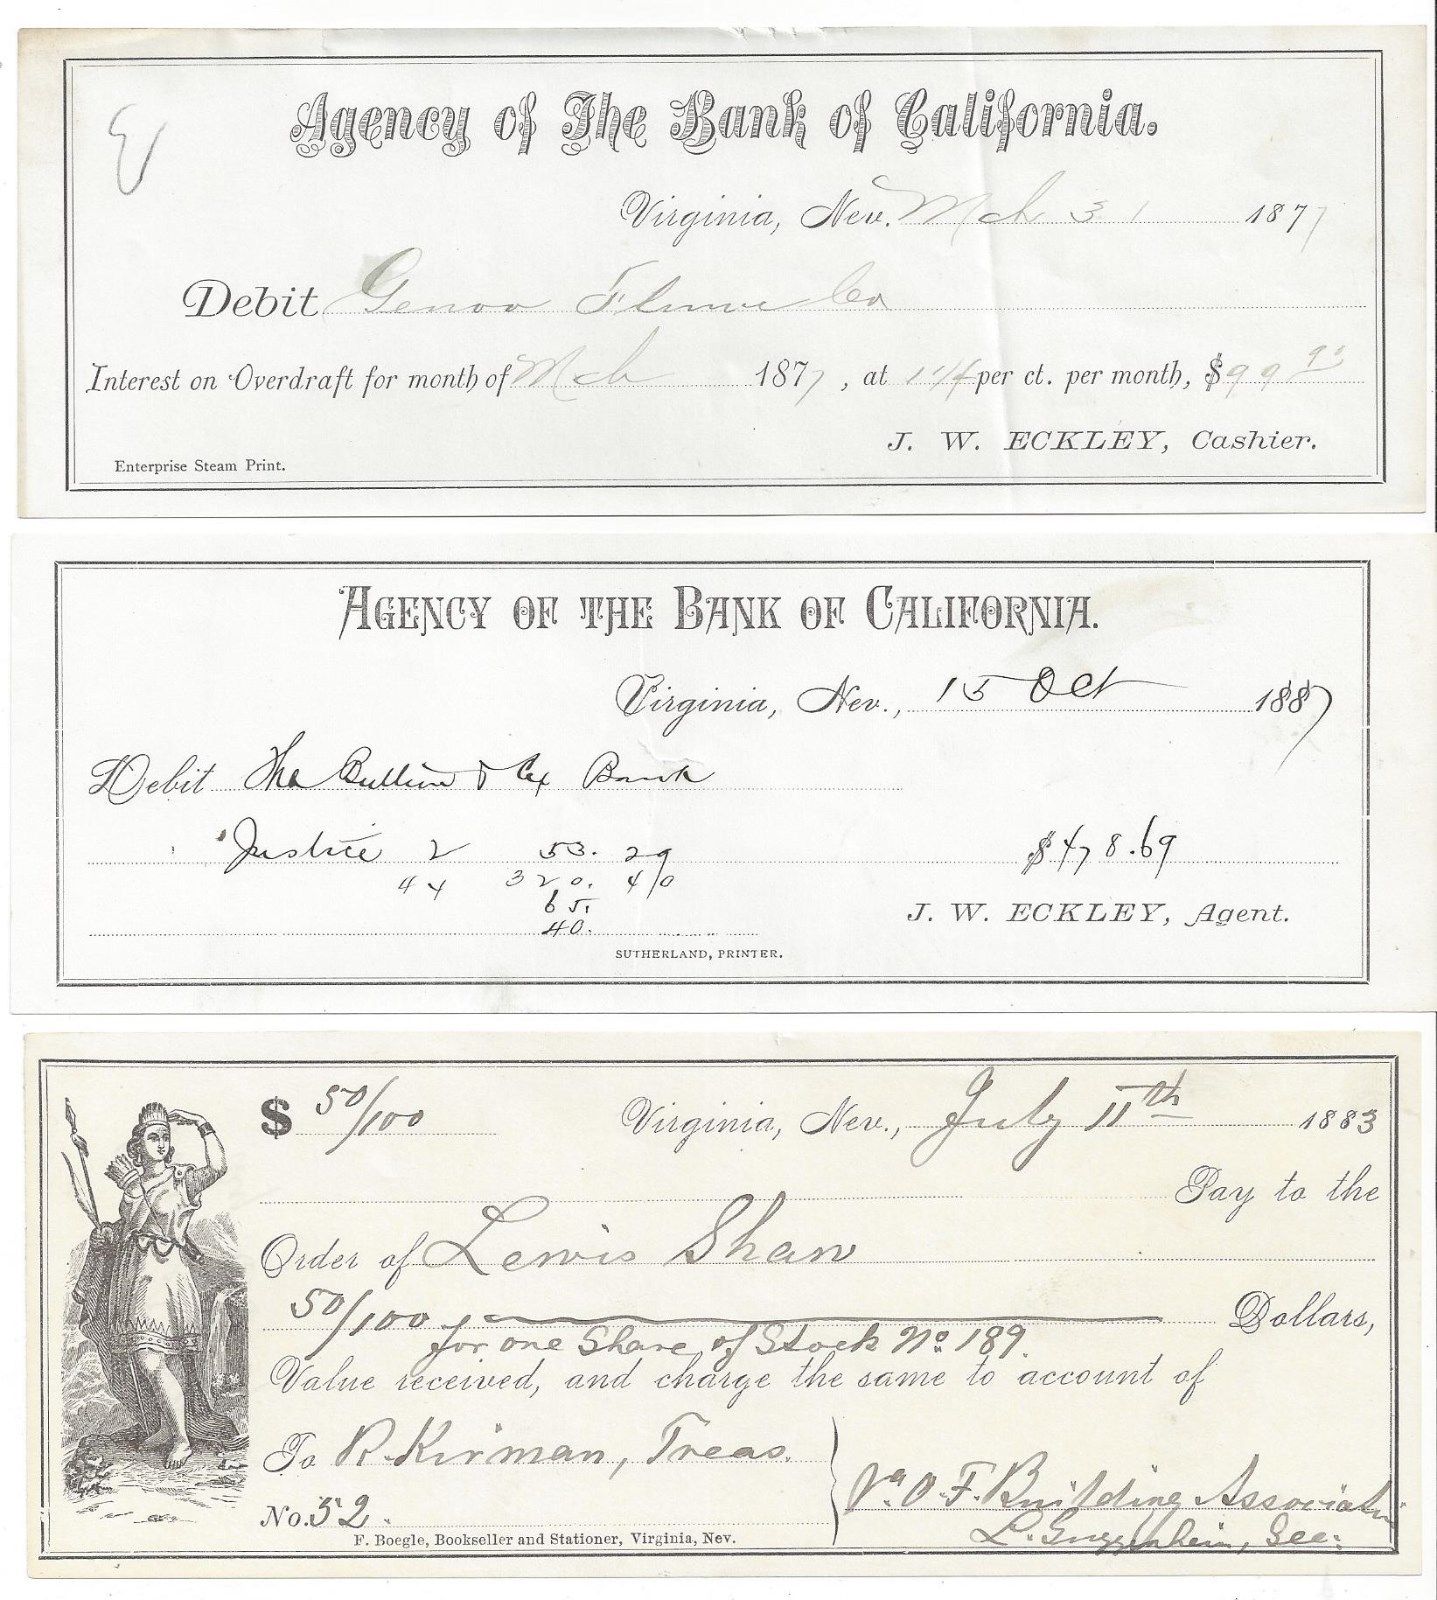 Agency of The Bank of California.
Virginia, Nev. Mch 31 1877
Debit Genoa Flume Co
Interest on Overdraft for month of Mch 1877, at 1 1/4 per ct. per month, $99
J. W. ECKLEY, Cashier.
Enterprise Steam Print.
AGENCY OF THE BANK OF CALIFORNIA.
Virginia, Nev., 15 Oct 1887
Debit The Bullion & Ex Bank
Justice 2 53.29 $478.69
44 320.40
65.
40.
J. W. ECKLEY, Agent.
SUTHERLAND, PRINTER.
$ 50/100 Virginia, Nev., July 11th 1883
Pay to the
Order of Lewis Shaw
50/100 Dollars,
for one Share of Stock No. 189.
Value received, and charge the same to account of
To R. Kirman, Treas.
Va. O. F. Building Association
No. 52.
L. Guggenheim, Sec.
F. Boegle, Bookseller and Stationer, Virginia, Nev.